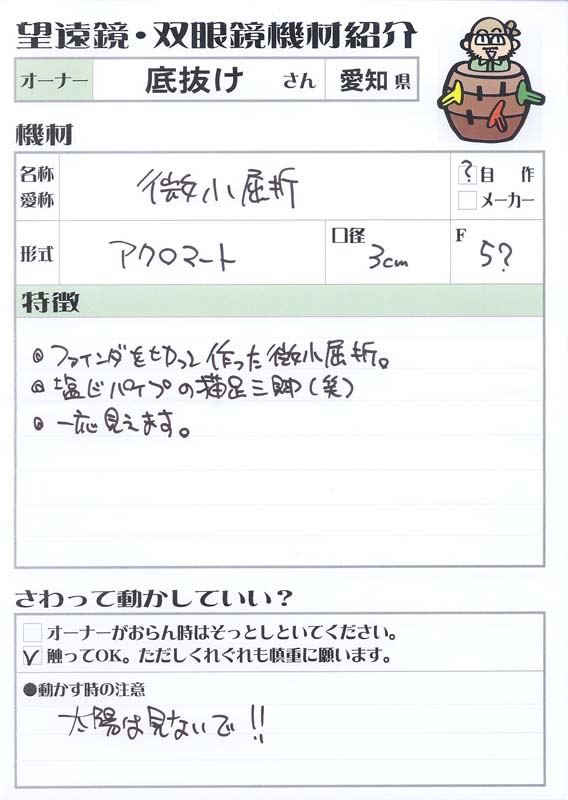 望遠鏡・双眼鏡機材紹介
オーナー 底抜け さん 愛知 県
機材
名称 愛称 微小屈折 ? 自作 メーカー
形式 アクロマート 口径 3cm F 5?
特徴
◎ ファインダを切って作った微小屈折。
◎ 塩ビパイプの猫足三脚(笑)
◎ 一応見えます。
さわって動かしていい?
オーナーがおらん時はそっとしといてください。
✓ 触ってOK。ただしくれぐれも慎重に願います。
●動かす時の注意
太陽は見ないで!!